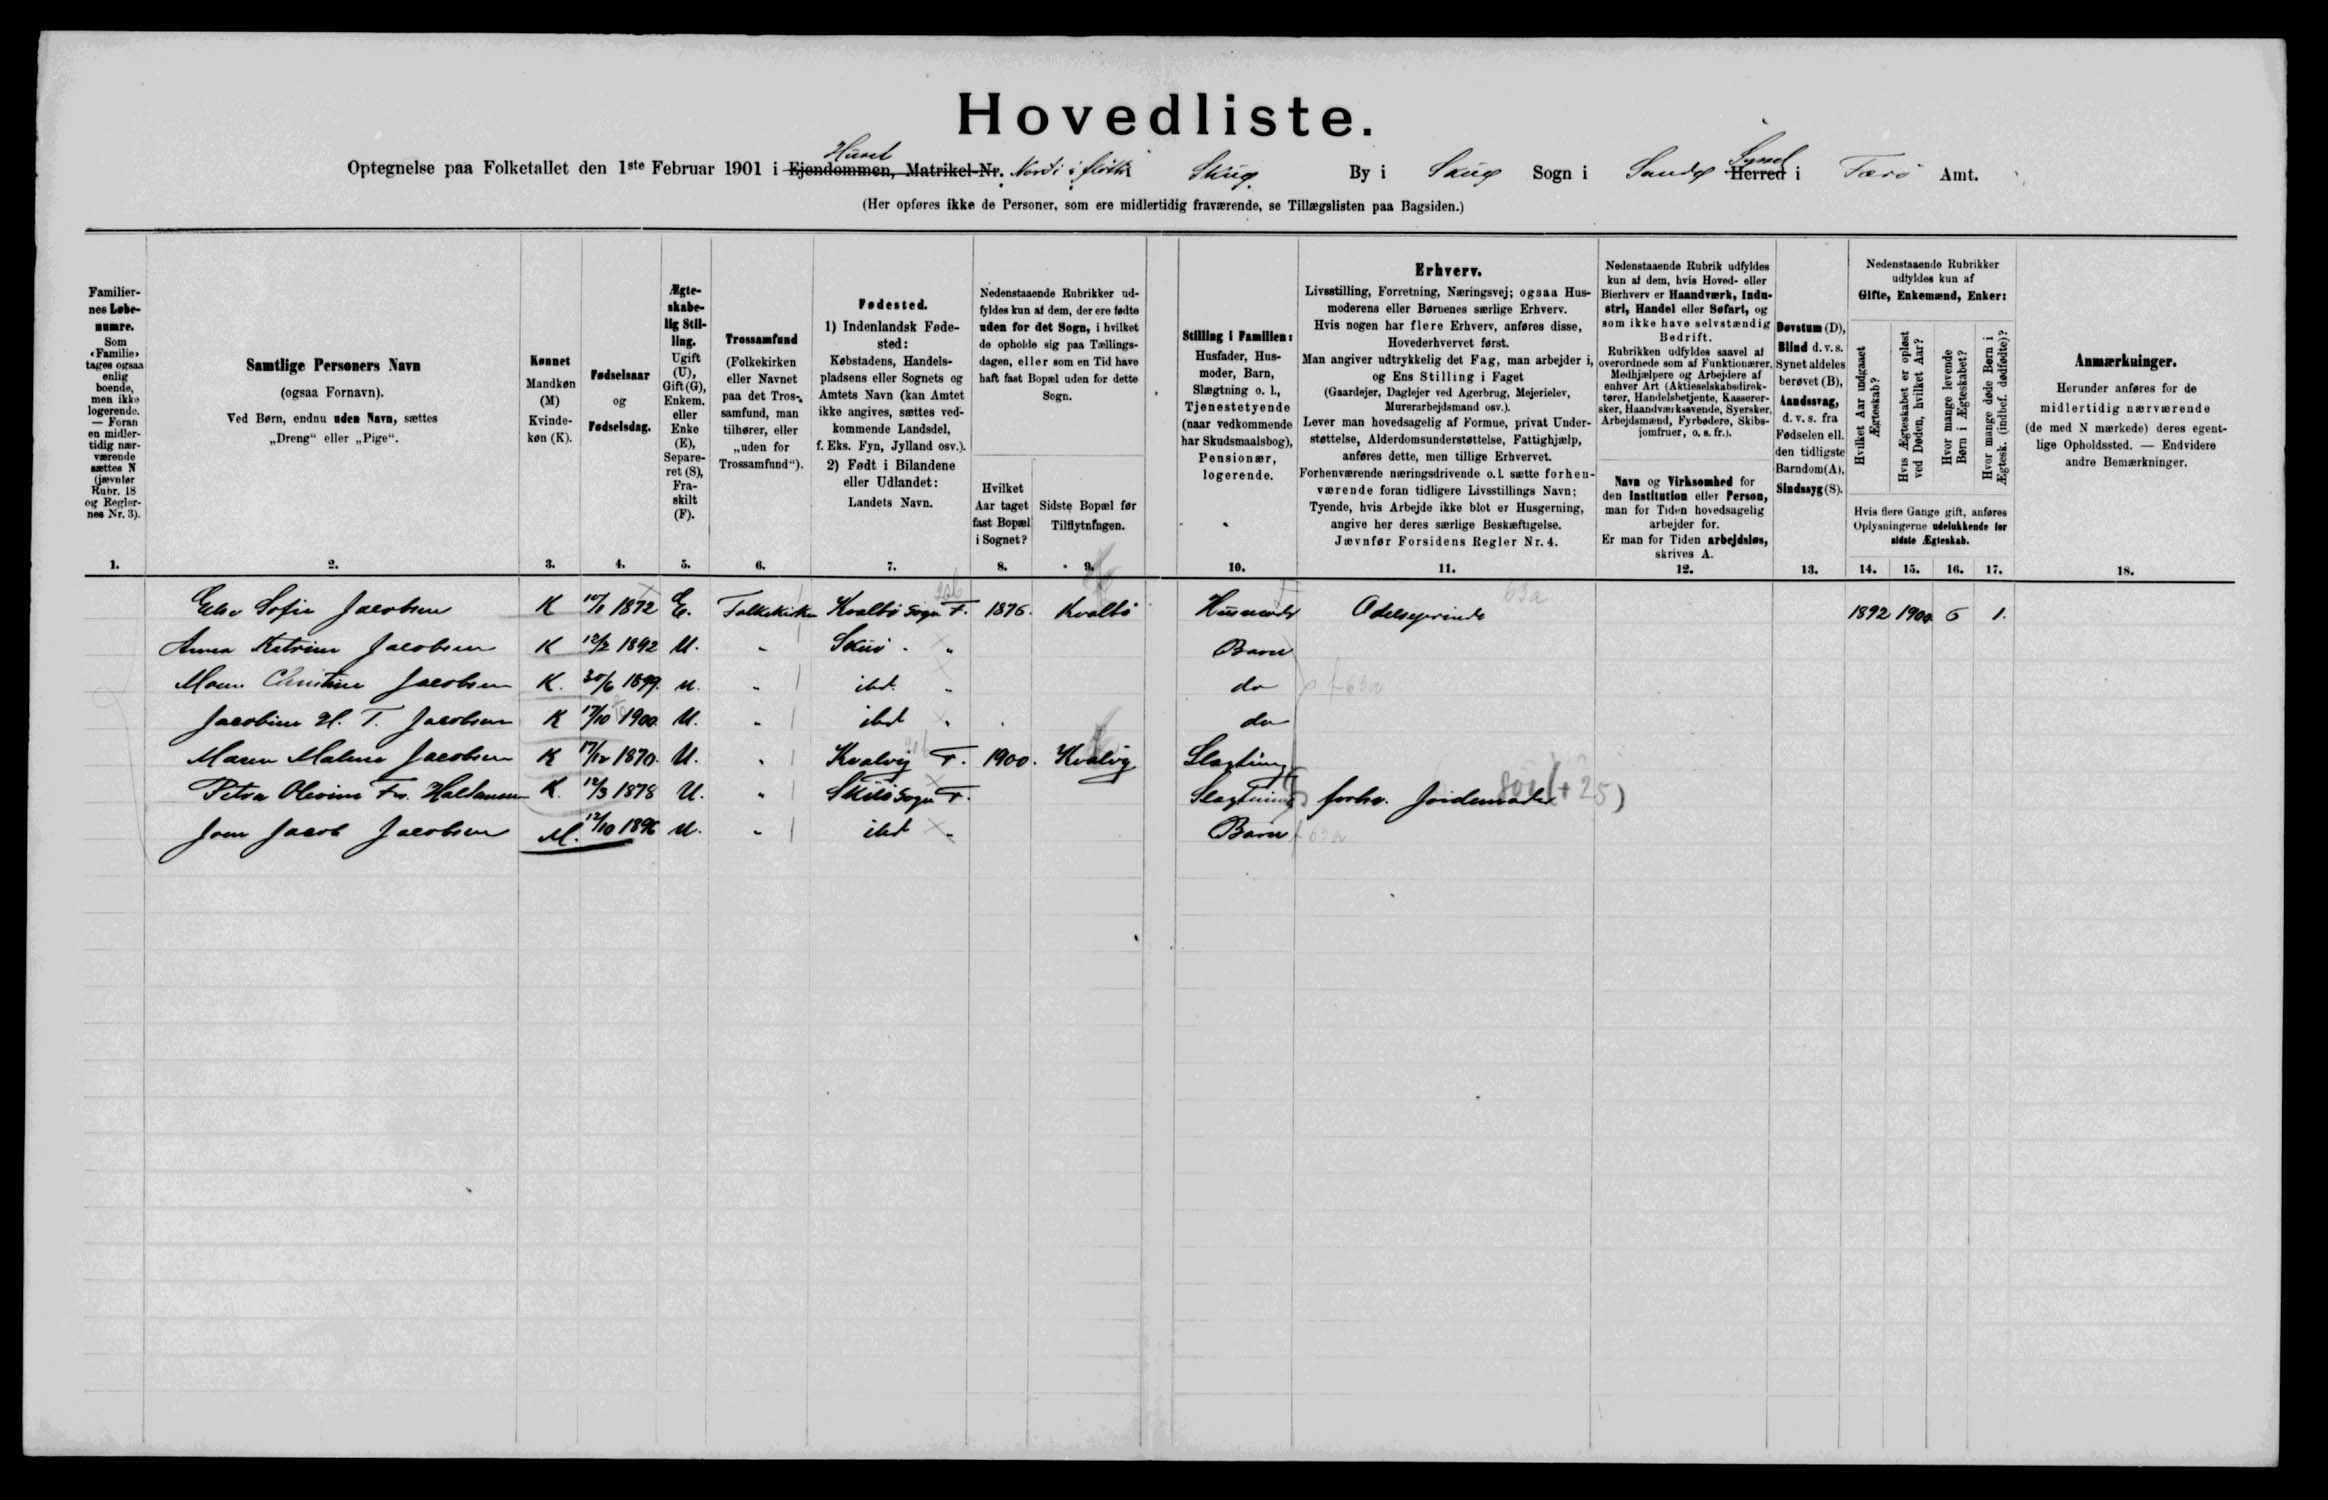 Hovedliste.
Optegnelse paa Folketallet den 1ste Februar 1901 i Huset Ejendommen, Matrikel-Nr. Nordi i By i Sogn i Sandø Syssel Herred i Færø Amt.
(Her opføres ikke de Personer, som ere midlertidig fraværende, se Tillægslisten paa Bagsiden.)
Familiernes Løbenumre.
Som «Familie» tages ogsaa enlig boende, men ikke logerende. — Foran en midlertidig nærværende sættes N (jævnfør Rubr. 18 og Reglernes Nr. 3).
Samtlige Personers Navn
(ogsaa Fornavn).
Ved Børn, endnu uden Navn, sættes
„Dreng“ eller „Pige“.
Kønnet
Mandkøn (M)
Kvindekøn (K).
Fødselsaar
og
Fødselsdag.
Ægteskabelig Stilling.
Ugift (U), Gift (G), Enkem. eller Enke (E), Separeret (S), Fraskilt (F).
Trossamfund
(Folkekirken eller Navnet paa det Trossamfund, man tilhører, eller „uden for Trossamfund“).
Fødested.
1) Indenlandsk Fødested:
Købstadens, Handelspladsens eller Sognets og Amtets Navn (kan Amtet ikke angives, sættes vedkommende Landsdel, f. Eks. Fyn, Jylland osv.).
2) Født i Bilandene eller Udlandet:
Landets Navn.
Nedenstaaende Rubrikker udfyldes kun af dem, der ere fødte uden for det Sogn, i hvilket de opholde sig paa Tællingsdagen, eller som en Tid have haft fast Bopæl uden for dette Sogn.
Hvilket Aar taget fast Bopæl i Sognet?
Sidste Bopæl før Tilflytningen.
Stilling i Familien:
Husfader, Husmoder, Barn, Slægtning o. l., Tjenestetyende (naar vedkommende har Skudsmaalsbog), Pensionær, logerende.
Erhverv.
Livsstilling, Forretning, Næringsvej; ogsaa Husmoderens eller Børnenes særlige Erhverv.
Hvis nogen har flere Erhverv, anføres disse, Hovederhvervet først.
Man angiver udtrykkelig det Fag, man arbejder i, og Ens Stilling i Faget
(Gaardejer, Daglejer ved Agerbrug, Mejerielev, Murerarbejdsmand osv.).
Lever man hovedsagelig af Formue, privat Understøttelse, Alderdomsunderstøttelse, Fattighjælp, anføres dette, men tillige Erhvervet.
Forhenværende næringsdrivende o. l. sætte forhenværende foran tidligere Livsstillings Navn;
Tyende, hvis Arbejde ikke blot er Husgerning, angive her deres særlige Beskæftigelse.
Jævnfør Forsidens Regler Nr. 4.
Nedenstaaende Rubrik udfyldes kun af dem, hvis Hoved- eller Bierhverv er Haandværk, Industri, Handel eller Søfart, og som ikke have selvstændig Bedrift.
Rubrikken udfyldes saavel af overordnede som af Funktionærer, Medhjælpere og Arbejdere af enhver Art (Aktieselskabsdirektører, Handelsbetjente, Kasserersker, Haandværkssvende, Syersker, Arbejdsmænd, Fyrbødere, Skibsjomfruer, o. s. fr.).
Navn og Virksomhed for den Institution eller Person, man for Tiden hovedsagelig arbejder for.
Er man for Tiden arbejdsløs, skrives A.
Døvstum (D), Blind d. v. s. Synet aldeles berøvet (B), Aandssvag, d. v. s. fra Fødselen ell. den tidligste Barndom (A), Sindssyg (S).
Nedenstaaende Rubrikker udfyldes kun af
Gifte, Enkemænd, Enker:
Hvilket Aar indgaaet Ægteskab?
Hvis Ægteskabet er opløst ved Døden, hvilket Aar?
Hvor mange levende Børn i Ægteskabet?
Hvor mange døde Børn i Ægtesk. (indbef. dødfødte)?
Hvis flere Gange gift, anføres Oplysningerne udelukkende for sidste Ægteskab.
Anmærkninger.
Herunder anføres for de midlertidig nærværende (de med N mærkede) deres egentlige Opholdssted. — Endvidere andre Bemærkninger.
1. 2. 3. 4. 5. 6. 7. 8. 9. 10. 11. 12. 13. 14. 15. 16. 17. 18.
Else Sofie Jacobsen K 10/1 1872 E. Folkekirken Kvalbø Sogn F. 1876. Kvalbø Husmoder 1892 1900 6 1.
Anna Katrine Jacobsen K 12/2 1892 U. " Barn
Maren Christine Jacobsen K. 30/6 1899. U. " ibd. " do
Jacobine H. T. Jacobsen K 17/10 1900 U. " ibd " do
Maren Malene Jacobsen K 17/12 1870. U. " Kvalvig F. 1900. Kvalvig Slægtning
Petra Olevine Fr. K. 12/3 1878 U. " Sogn F. Slægtning forhv. Jordemoder
Joen Jacob Jacobsen M. 12/10 1896 U. " ibd " Barn